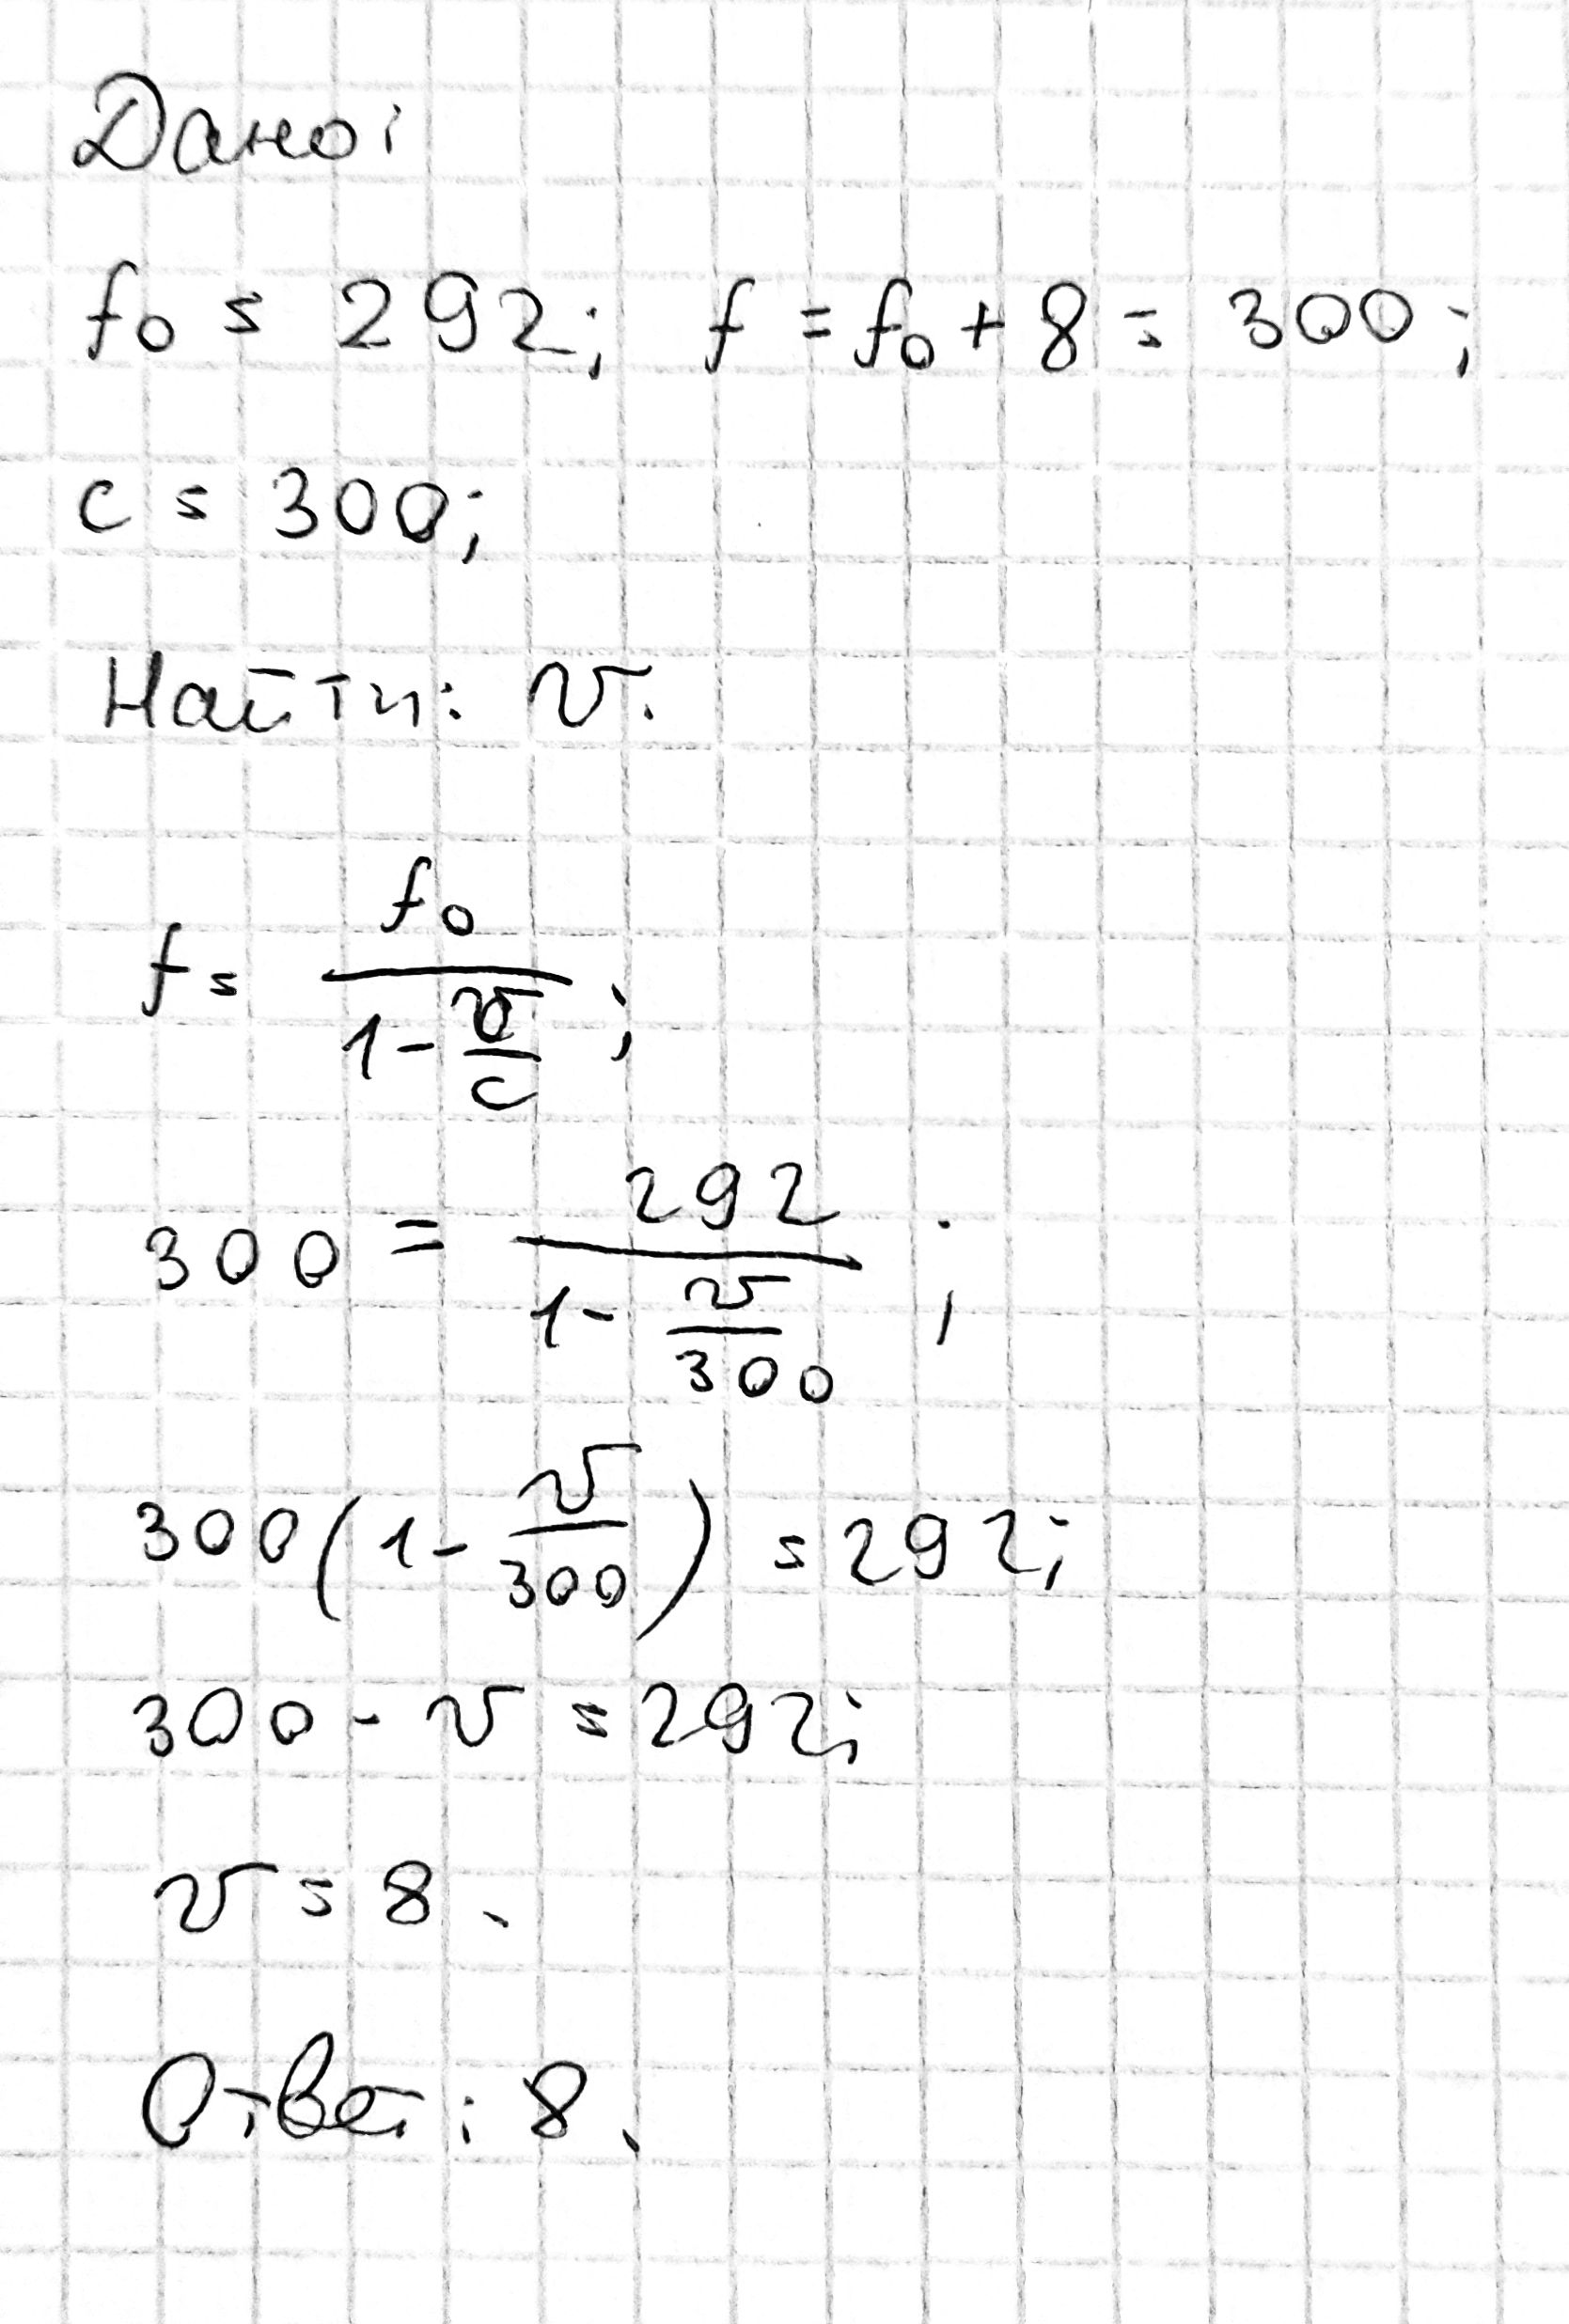 Дано:
f₀ = 292; f = f₀ + 8 = 300;
c = 300;
Найти: v.
f = f₀ / (1 - v/c);
300 = 292 / (1 - v/300);
300(1 - v/300) = 292;
300 - v = 292;
v = 8.
Ответ: 8.